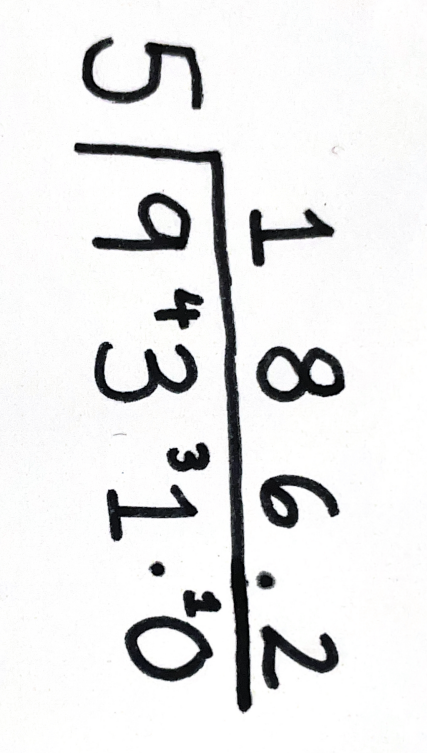 1 8 6 . 2
5 9 ⁴3 ³1 . ¹0